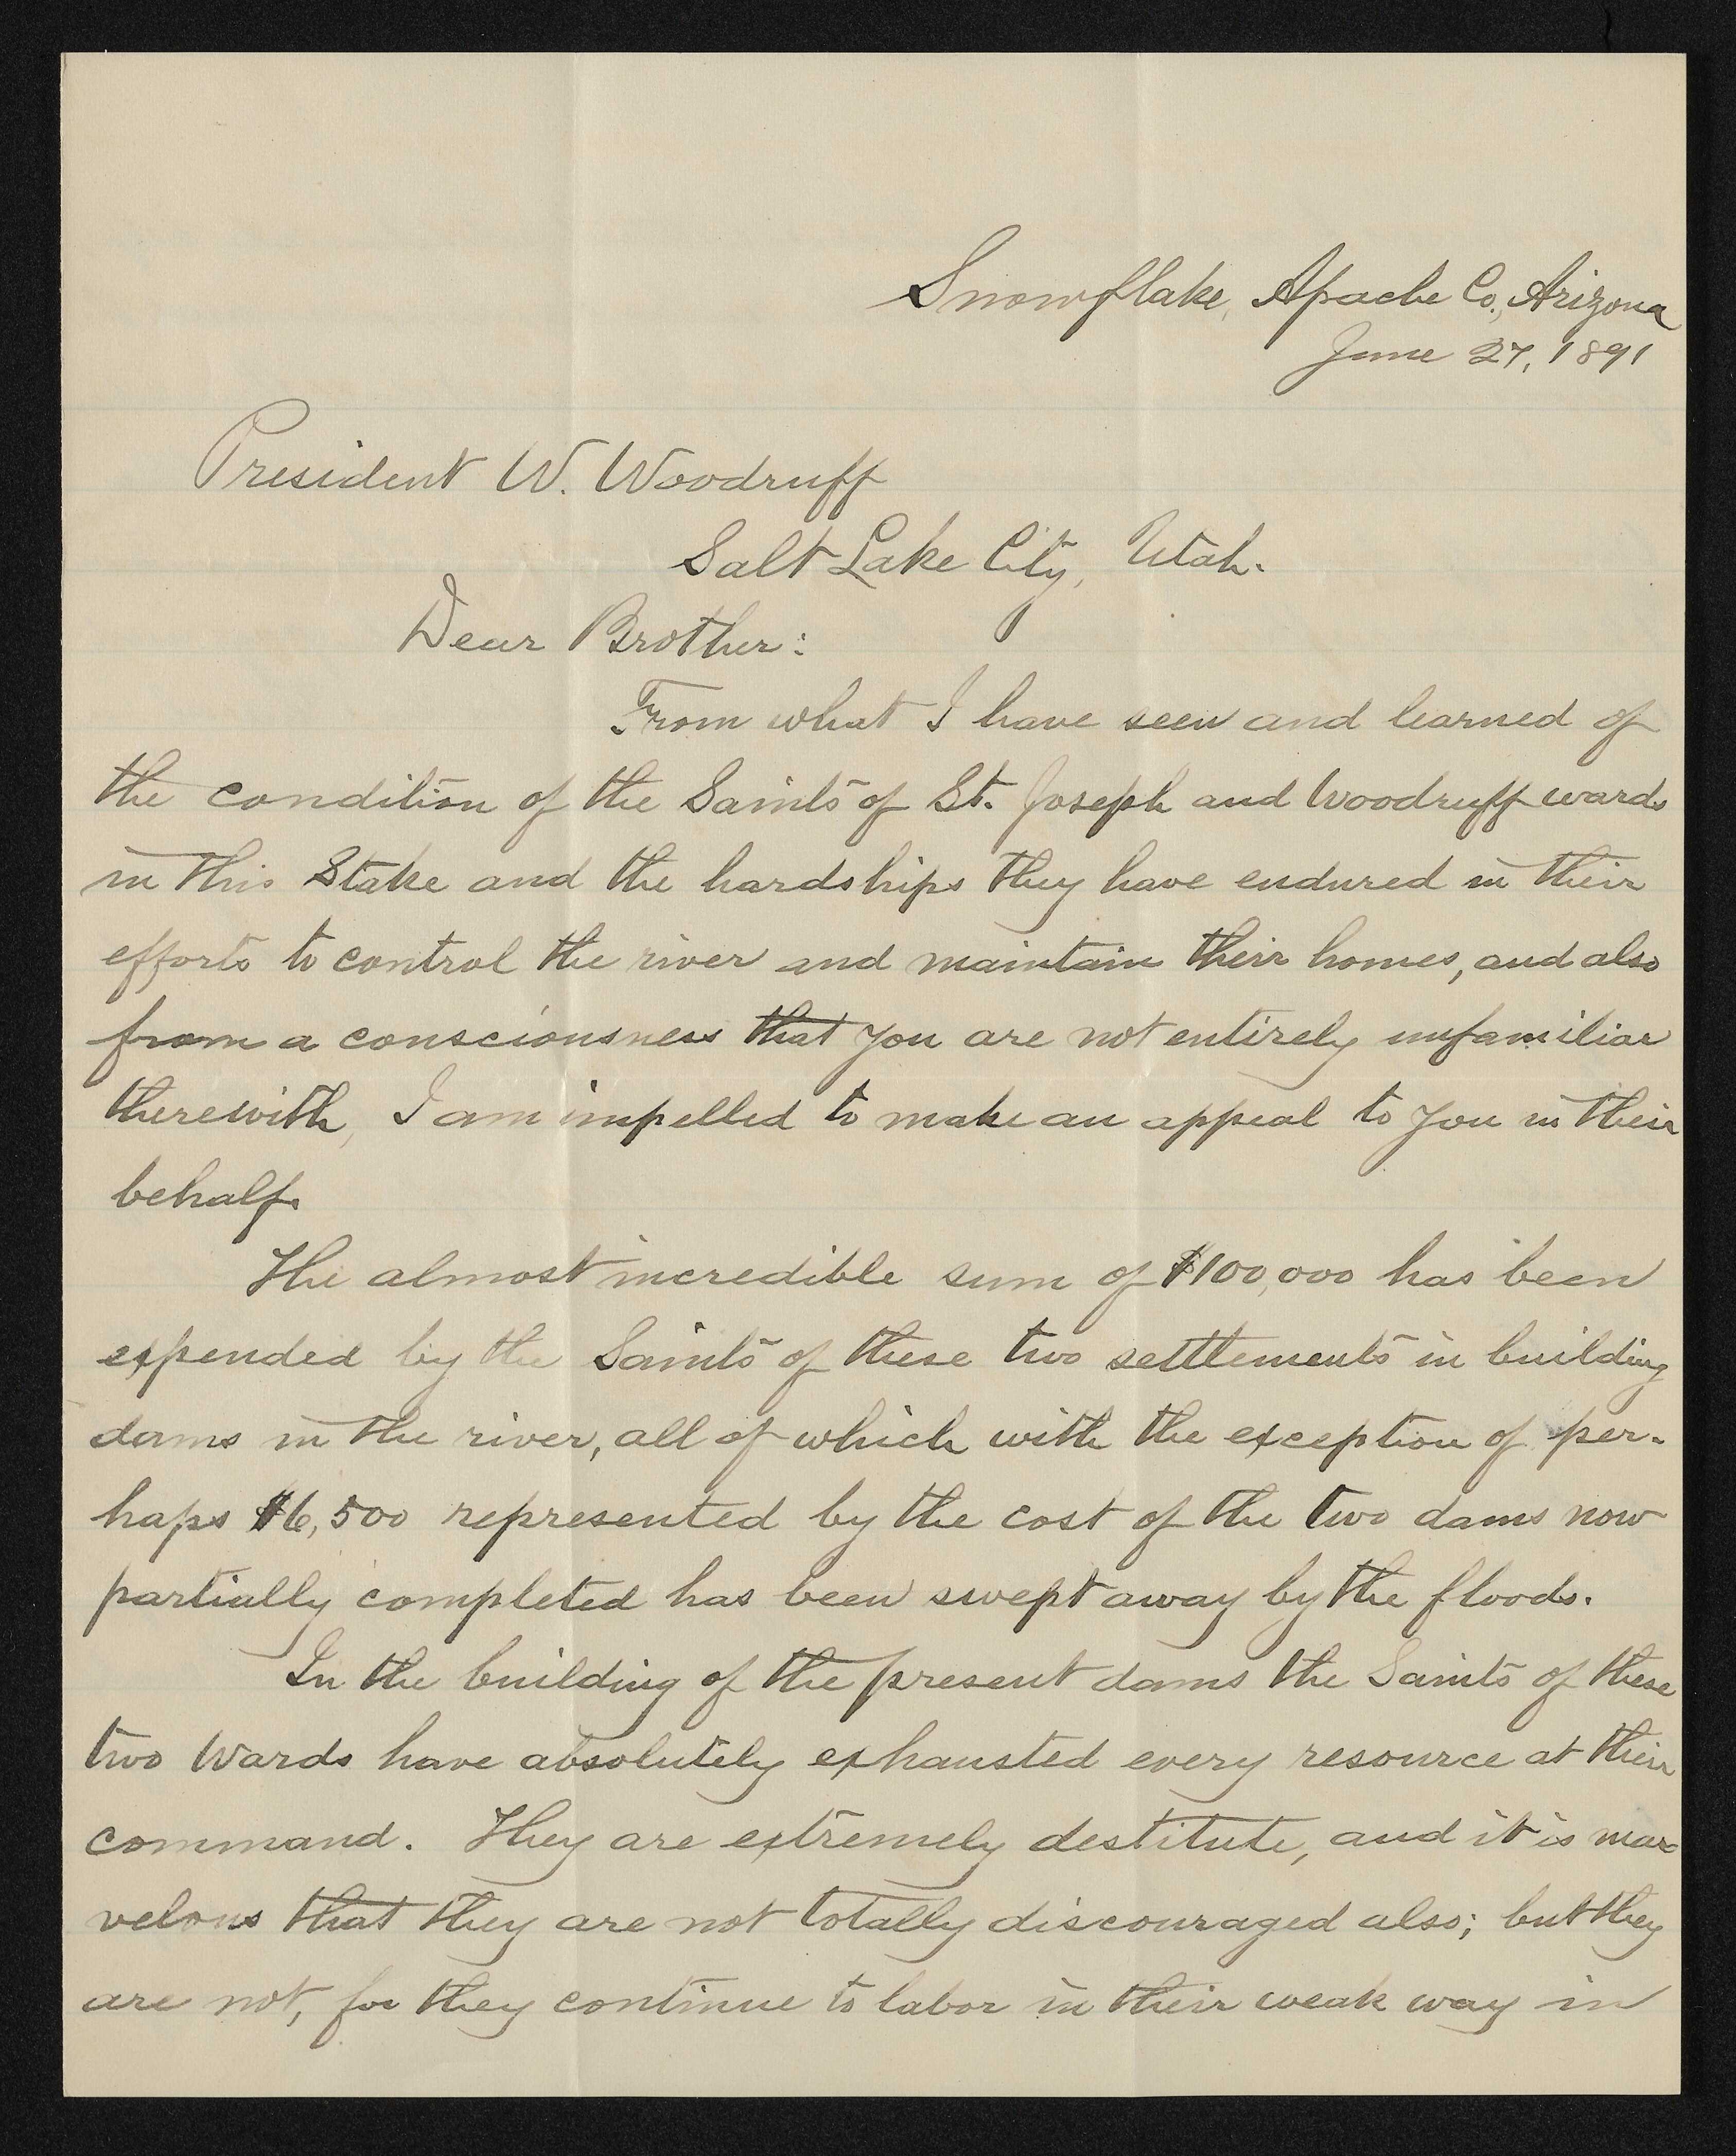 Snowflake, Apache Co., Arizona
June 27, 1891
President W. Woodruff
Salt Lake City, Utah.
Dear Brother:
From what I have seen and learned of
the condition of the Saints of St. Joseph and Woodruff wards
in this Stake and the hardships they have endured in their
efforts to control the river and maintain their homes, and also
from a consciousness that you are not entirely unfamiliar
therewith, I am impelled to make an appeal to you in their
behalf.
The almost incredible sum of $100,000 has been
expended by the Saints of these two settlements in building
dams in the river, all of which with the exception of per-
haps $6,500 represented by the cost of the two dams now
partially completed has been swept away by the floods.
In the building of the present dams the Saints of these
two Wards have absolutely exhausted every resource at their
command. They are extremely destitute, and it is mar-
velous that they are not totally discouraged also; but they
are not, for they continue to labor in their weak way in